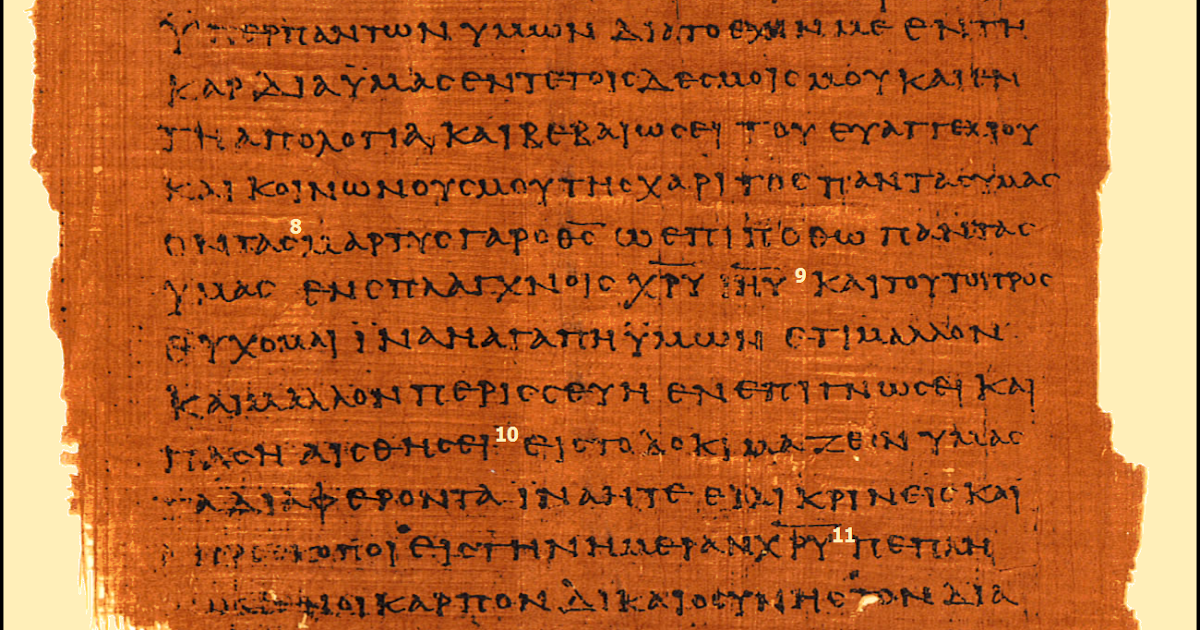 ΫΠΕΡΠΑΝΤΩΝ ΥΜΩΝ ΔΙΑΤΟΕΧΙΝ ΜΕ ΕΝΤΗ
ΚΑΡΔΙΑΫΜΑΣ ΕΝΤΕΤΟΙϹΔΕϹΜΟΙϹ ΜΟΥ ΚΑΙΕΝ
ΤΗ ΑΠΟΛΟΓΙΑ ΚΑΙΒΕΒΑΙΩϹΕΙ ΤΟΥ ΕΥΑΓΓΕΛΙΟΥ
ΚΑΙ ΚΟΙΝΩΝΟΥϹΜΟΥΤΗϹΧΑΡΙΤΟϹ ΠΑΝΤΑϹΥΜΑϹ
ΟΝΤΑϹ 8 ΜΑΡΤΥϹΓΑΡΟΘϹ ΩϹΕΠΙΠΟΘΩ ΠΑΝΤΑϹ
ΥΜΑϹ ΕΝϹΠΛΑΓΧΝΟΙϹ ΧΡΥ ΙΗΥ 9 ΚΑΙΤΟΥΤΟΠΡΟϹ
ΕΥΧΟΜΑΙ ΪΝΑΗΑΓΑΠΗ ΫΜΩΝ ΕΤΙΜΑΛΛΟΝ
ΚΑΙΜΑΛΛΟΝ ΠΕΡΙϹϹΕΥΗ ΕΝ ΕΠΙΓΝΩϹΕΙ ΚΑΙ
ΠΑϹΗ ΑΙϹΘΗϹΕΙ 10 ΕΙϹΤΟ ΔΟΚΙΜΑΖΕΙΝ ΥΜΑϹ
ΤΑ ΔΙΑΦΕΡΟΝΤΑ ΙΝΑΗΤΕ ΕΙΛΙΚΡΙΝΕΙϹ ΚΑΙ
ΑΠΡΟϹΚΟΠΟΙ ΕΙϹΤΗΝ ΗΜΕΡΑΝ ΧΡΥ 11 ΠΕΠΛΗ
ΚΑΡΠΟΝ ΔΙΚΑΙΟϹΥΝΗϹ ΤΟΝ ΔΙΑ